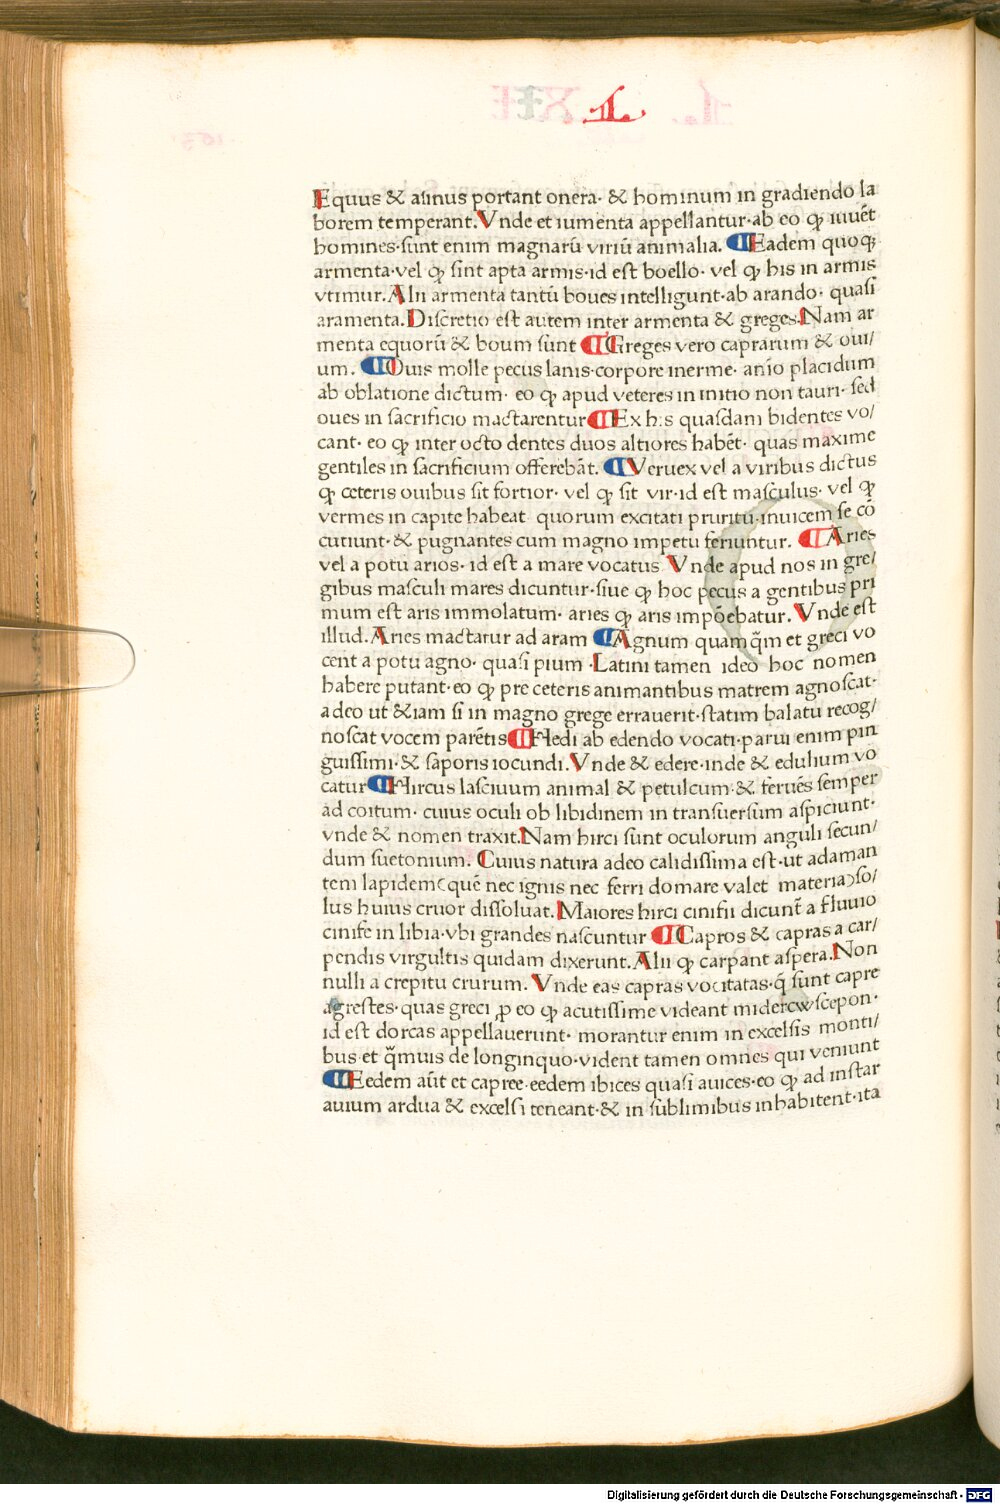 L
Equus & asinus portant onera· & hominum in gradiendo la
borem temperant. Vnde et iumenta appellantur·ab eo ꝙ iuuẽt
homines·sunt enim magnarũ viriũ animalia. ¶ Eadem quoqꝫ
armenta·vel ꝙ sint apta armis·id est boello· vel ꝙ his in armis
vtimur. Alii armenta tantũ boues intelligunt·ab arando· quasi
aramenta. Discretio est autem inter armenta & greges. Nam ar
menta equorũ & boum sunt ¶ Greges vero caprarum & oui/
um. ¶ Ouis molle pecus lanis·corpore inerme· anĩo placidum
ab oblatione dictum· eo ꝙ apud veteres in initio non tauri· sed
oues in sacrificio mactarentur ¶ Ex h:s quasdam bidentes vo/
cant· eo ꝙ inter octo dentes duos altiores habẽt· quas maxime
gentiles in sacrificium offerebãt. ¶ Veruex vel a viribus dictus
ꝙ ceteris ouibus sit fortior· vel ꝙ sit vir·id est masculus· vel ꝙ
vermes in capite habeat quorum excitati pruritu·inuicem se cõ
cutiunt·& pugnantes cum magno impetu feriuntur. ¶ Aries
vel a potu arios· id est a mare vocatus Vnde apud nos in gre/
gibus masculi mares dicuntur·siue ꝙ hoc pecus a gentibus pri
mum est aris immolatum· aries ꝙ aris impõebatur. Vnde est
illud. Aries mactatur ad aram ¶ Agnum quam q̃m et greci vo
cent a potu agno· quasi pium ·Latini tamen ideo hoc nomen
habere putant·eo ꝙ pre ceteris animantibus matrem agnoscat·
adeo ut &iam si in magno grege errauerit·statim balatu recog/
noscat vocem parẽtis ¶ Hedi ab edendo vocati·parui enim pin
guissimi·& saporis iocundi. Vnde & edere·inde & edulium vo
catur ¶ Hircus lasciuum animal & petulcum·& feruẽs semper
ad coitum· cuius oculi ob libidinem in transuersum aspiciunt·
vnde & nomen traxit. Nam hirci sunt oculorum anguli secun/
dum suetonium. Cuius natura adeo calidissima est·ut adaman
tem lapidem(quẽ nec ignis nec ferri domare valet materia)so/
lus huius cruor dissoluat. Maiores hirci cinifii dicunt̃ a fluuio
cinife in libia·vbi grandes nascuntur ¶ Capros & capras a car/
pendis virgultis quidam dixerunt. Alii ꝙ carpant aspera. Non
nulli a crepitu crurum. Vnde eas capras vocitatas·q̃ sunt capre
agrestes·quas greci ꝓ eo ꝙ acutissime videant midercwscepon·
id est dorcas appellauerunt· morantur enim in excelsis monti/
bus·et q̃muis de longinquo·vident tamen omnes qui veniunt
¶ Eedem aũt et capree·eedem ibices quasi auices·eo ꝙ ad instar
auium ardua & excelsi teneant·& in sublimibus inhabitent·ita
Digitalisierung gefördert durch die Deutsche Forschungsgemeinschaft - DFG